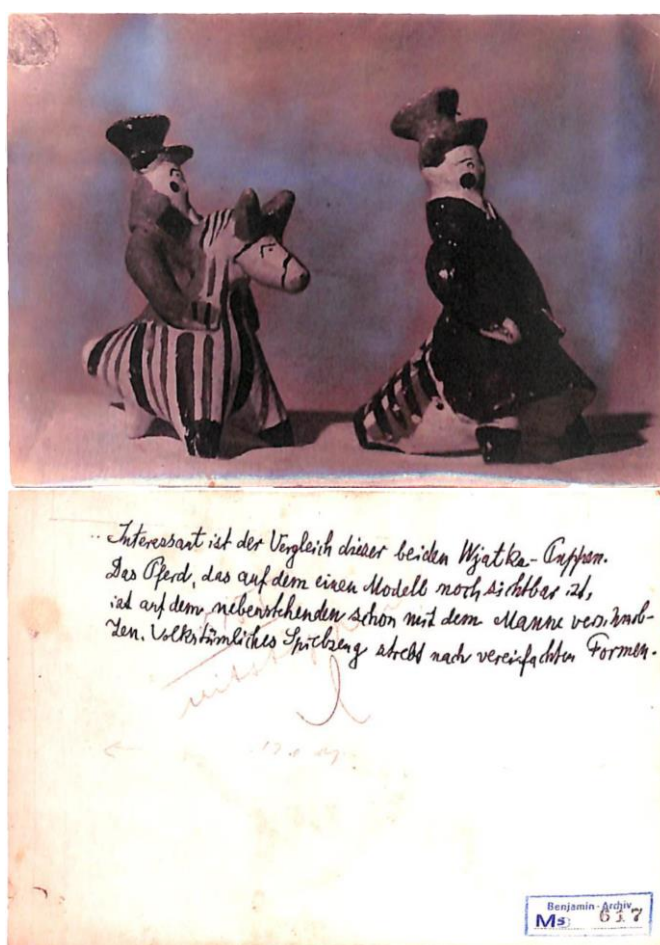 Interessant ist der Vergleich dieser beiden Wjatka-Puppen.
Das Pferd, das auf dem einen Modell noch sichtbar ist,
ist auf dem nebenstehenden schon mit dem Manne verschmol-
zen. Volkstümliches Spielzeug strebt nach vereinfachten Formen.
Benjamin-Archiv
Ms 617